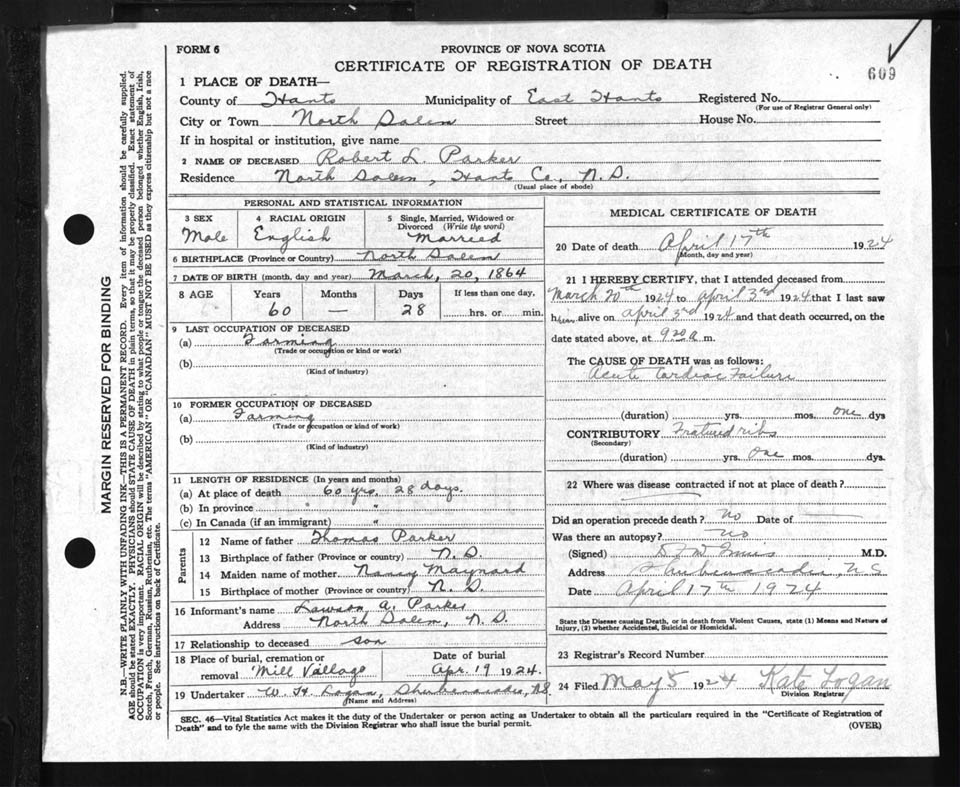 FORM 6
PROVINCE OF NOVA SCOTIA
CERTIFICATE OF REGISTRATION OF DEATH
609
1 PLACE OF DEATH—
County of Hants Municipality of East Hants Registered No.
(For use of Registrar General only)
City or Town North Salem Street House No.
If in hospital or institution, give name
2 NAME OF DECEASED Robert L. Parker
Residence North Salem, Hants Co., N.S.
(Usual place of abode)
PERSONAL AND STATISTICAL INFORMATION
3 SEX 4 RACIAL ORIGIN 5 Single, Married, Widowed or
Divorced (Write the word)
Male English Married
6 BIRTHPLACE (Province or Country) North Salem
7 DATE OF BIRTH (month, day and year) March, 20, 1864
8 AGE Years Months Days If less than one day,
60 — 28 hrs. or min.
9 LAST OCCUPATION OF DECEASED
(a) Farming
(Trade or occupation or kind or work)
(b)
(Kind of industry)
10 FORMER OCCUPATION OF DECEASED
(a) Farming
(Trade or occupation or kind of work)
(b)
(Kind of industry)
11 LENGTH OF RESIDENCE (In years and months)
(a) At place of death 60 yrs. 28 days.
(b) In province " "
(c) In Canada (if an immigrant) "
Parents
12 Name of father Thomas Parker
13 Birthplace of father (Province or country) N.S.
14 Maiden name of mother Nancy Maynard
15 Birthplace of mother (Province or country) N.S.
16 Informant's name Lawson A. Parker
Address North Salem, N.S.
17 Relationship to deceased son
18 Place of burial, cremation or Date of burial
removal Mill Village Apr. 19 1924.
19 Undertaker W. H. Logan, Shubenacadie, N.S.
(Name and Address)
MEDICAL CERTIFICATE OF DEATH
20 Date of death April 17th 1924
(Month, day and year)
21 I HEREBY CERTIFY, that I attended deceased from
March 20th 1924 to April 3rd 1924 that I last saw
him alive on April 3rd 1924 and that death occurred, on the
date stated above, at 9 20 a m.
The CAUSE OF DEATH was as follows:
Acute Cardiac Failure
(duration) yrs. mos. one dys
CONTRIBUTORY Fractured ribs
(Secondary)
(duration) yrs. one mos. dys.
22 Where was disease contracted if not at place of death?
Did an operation precede death? no Date of
Was there an autopsy? no
(Signed) M.D.
Address Shubenacadie, N.S.
Date April 17th 1924
State the Disease causing Death, or in death from Violent Causes, state (1) Means and Nature of
Injury, (2) whether Accidental, Suicidal or Homicidal.
23 Registrar's Record Number
24 Filed May 5 1924 Kate Logan
Division Registrar
SEC. 46—Vital Statistics Act makes it the duty of the Undertaker or person acting as Undertaker to obtain all the particulars required in the "Certificate of Registration of
Death" and to fyle the same with the Division Registrar who shall issue the burial permit. (OVER)
MARGIN RESERVED FOR BINDING
N.B.—WRITE PLAINLY WITH UNFADING INK—THIS IS A PERMANENT RECORD. Every item of information should be carefully supplied.
AGE should be stated EXACTLY. PHYSICIANS should STATE CAUSE OF DEATH in plain terms, so that it may be properly classified. Exact statement of
OCCUPATION is very important. RACIAL ORIGIN will be described by stating to what people or tongue the deceased person belonged whether English, Irish,
Scotch, French, German, Russian, Ruthenian, etc. The terms "AMERICAN" OR "CANADIAN" MUST NOT BE USED as they express citizenship but not a race
or people. See instructions on back of Certificate.